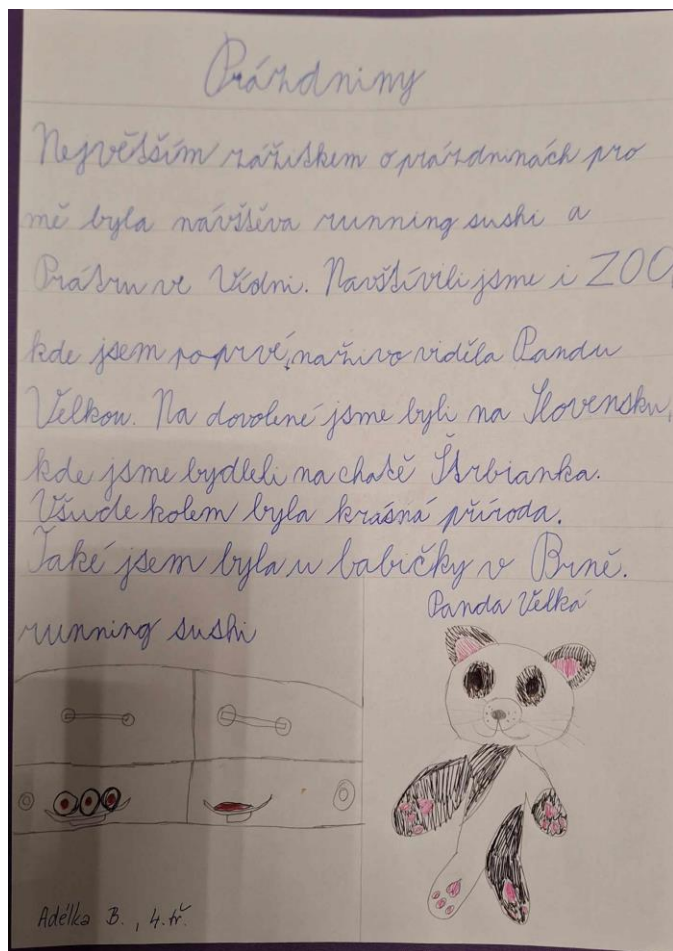 Prázdniny
Největším zážitkem o prázdninách pro
mě byla návštěva running sushi a
Prátru ve Vídni. Navštívili jsme i ZOO,
kde jsem poprvé, naživo viděla Pandu
Velkou. Na dovolené jsme byli na Slovensku,
kde jsme bydleli na chatě Štrbianka.
Všude kolem byla krásná příroda.
Také jsem byla u babičky v Brně.
Panda Velká
running sushi
Adélka B., 4. tř.